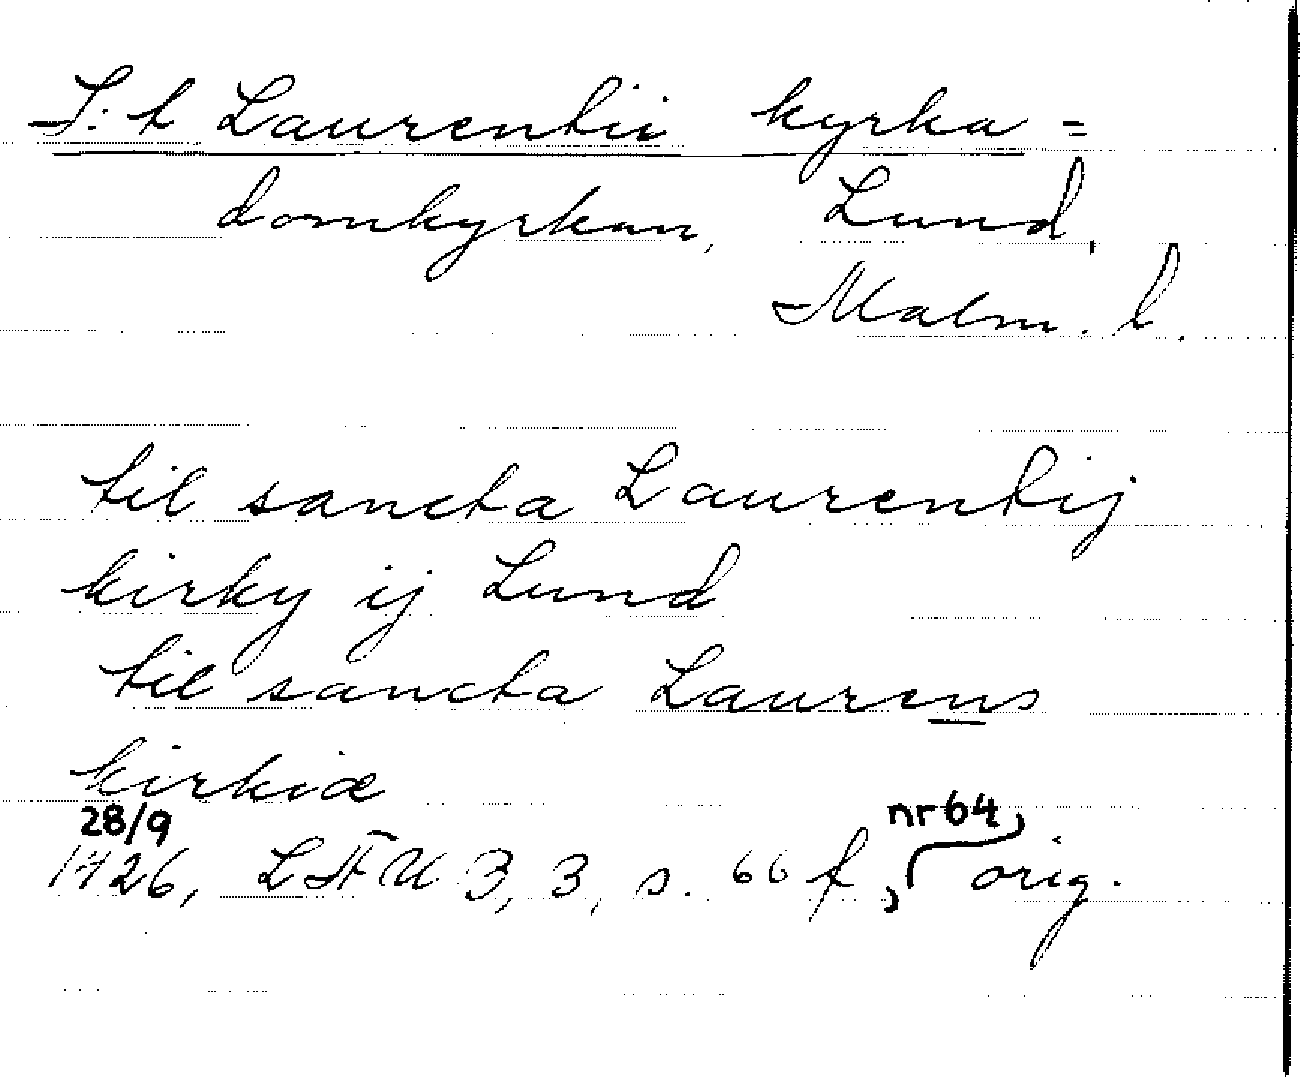 S:t Laurentii kyrka =
domkyrkan, Lund,
Malm. l.
til sancta Laurentij
kirky ij Lund
til sancta Laurens
kirkiæ
28/9 nr 64,
1426, LÄU 3, 3, s. 66 f, orig.